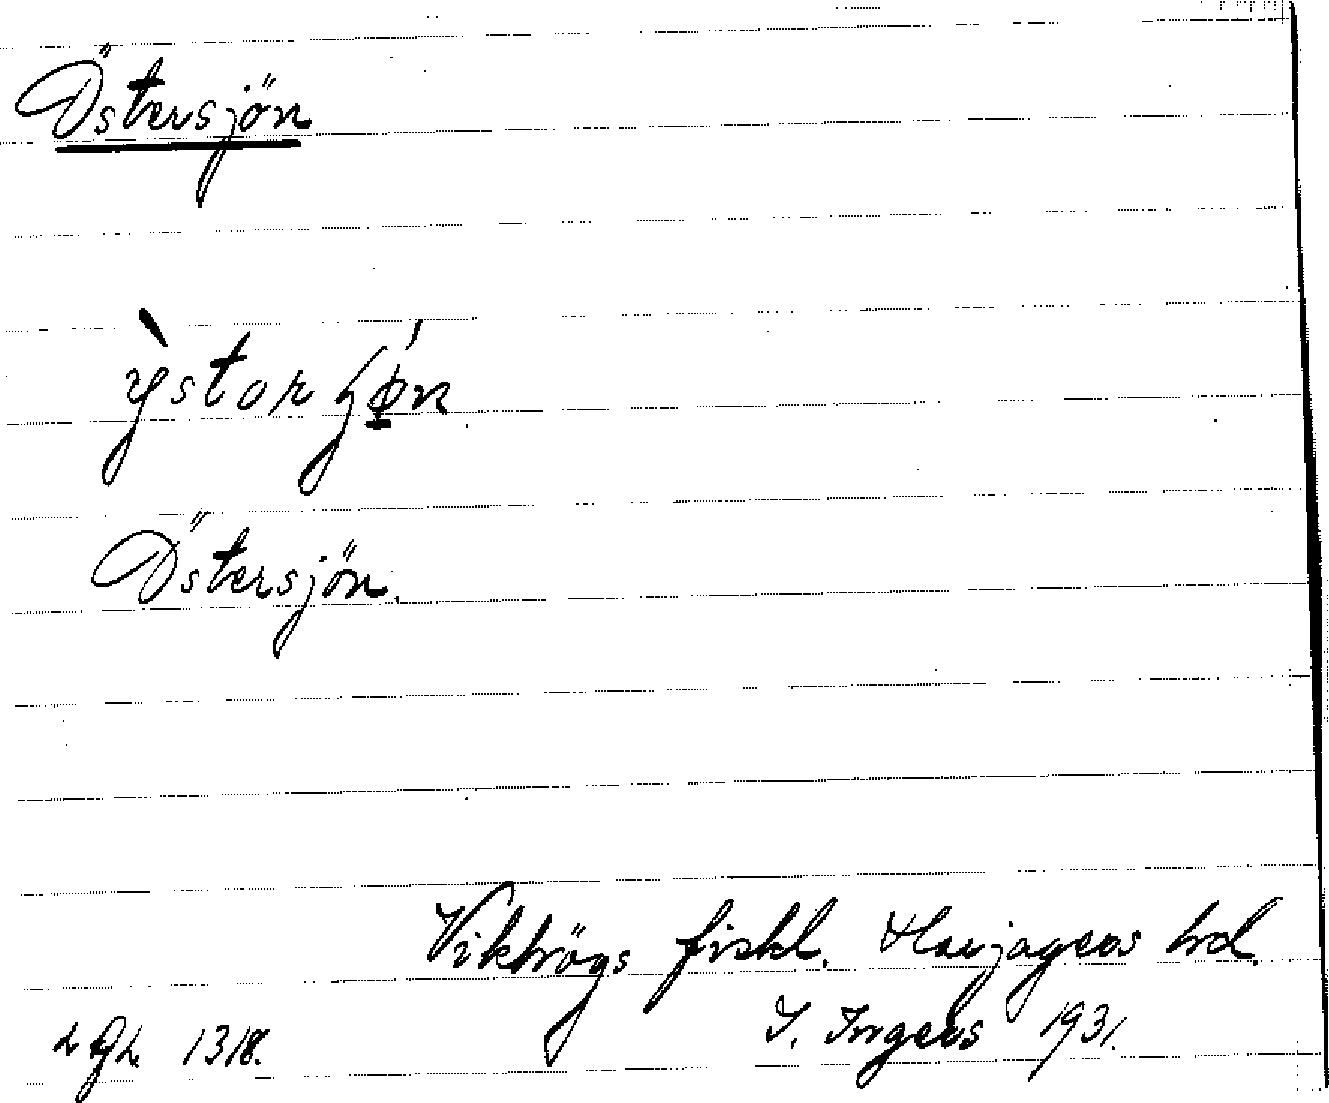 Östersjön
ỳstor ʃǿ̱n
Östersjön.
Vikhögs fiskl. Harjagers hd.
I. Ingers 1931.
LGL 1318.